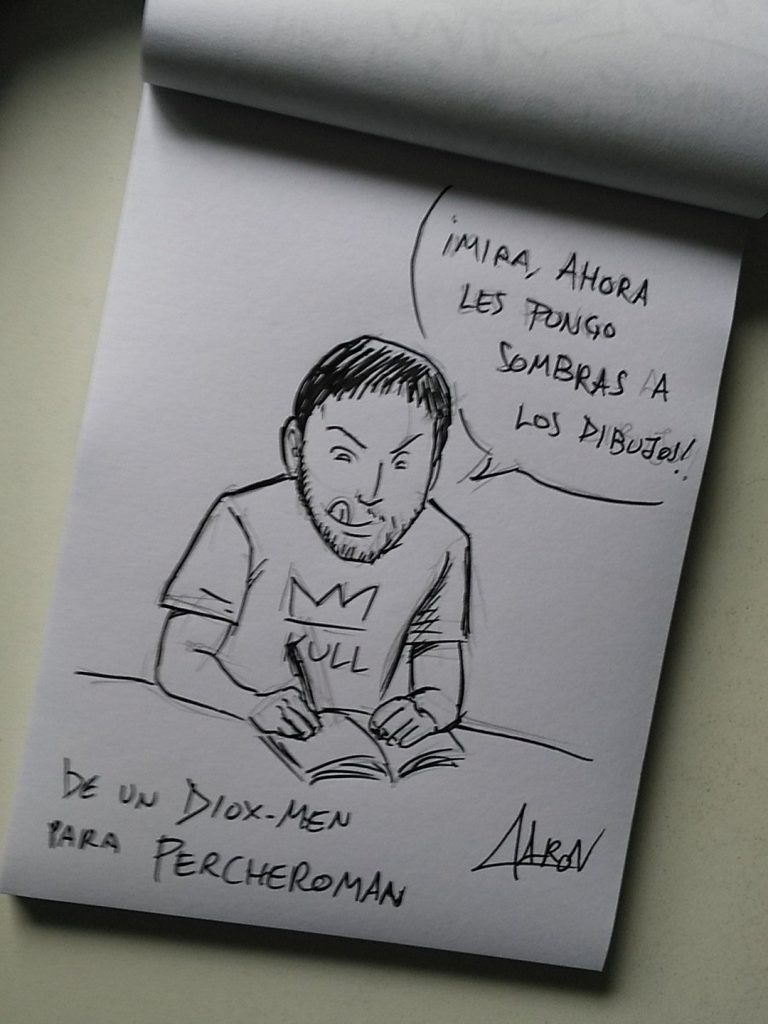 ¡MIRA, AHORA
LES PONGO
SOMBRAS A
LOS DIBUJOS!
KULL
DE UN DIOX-MEN
PARA PERCHEROMAN
AARON